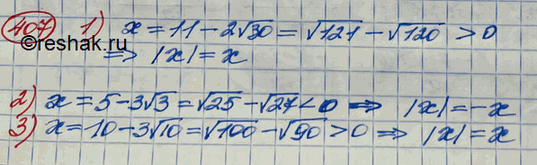 407 1) x = 11 - 2√30 = √121 - √120 > 0
©reshak.ru
⇒ |x| = x
2) x = 5 - 3√3 = √25 - √27 < 0 ⇒ |x| = -x
3) x = 10 - 3√10 = √100 - √90 > 0 ⇒ |x| = x